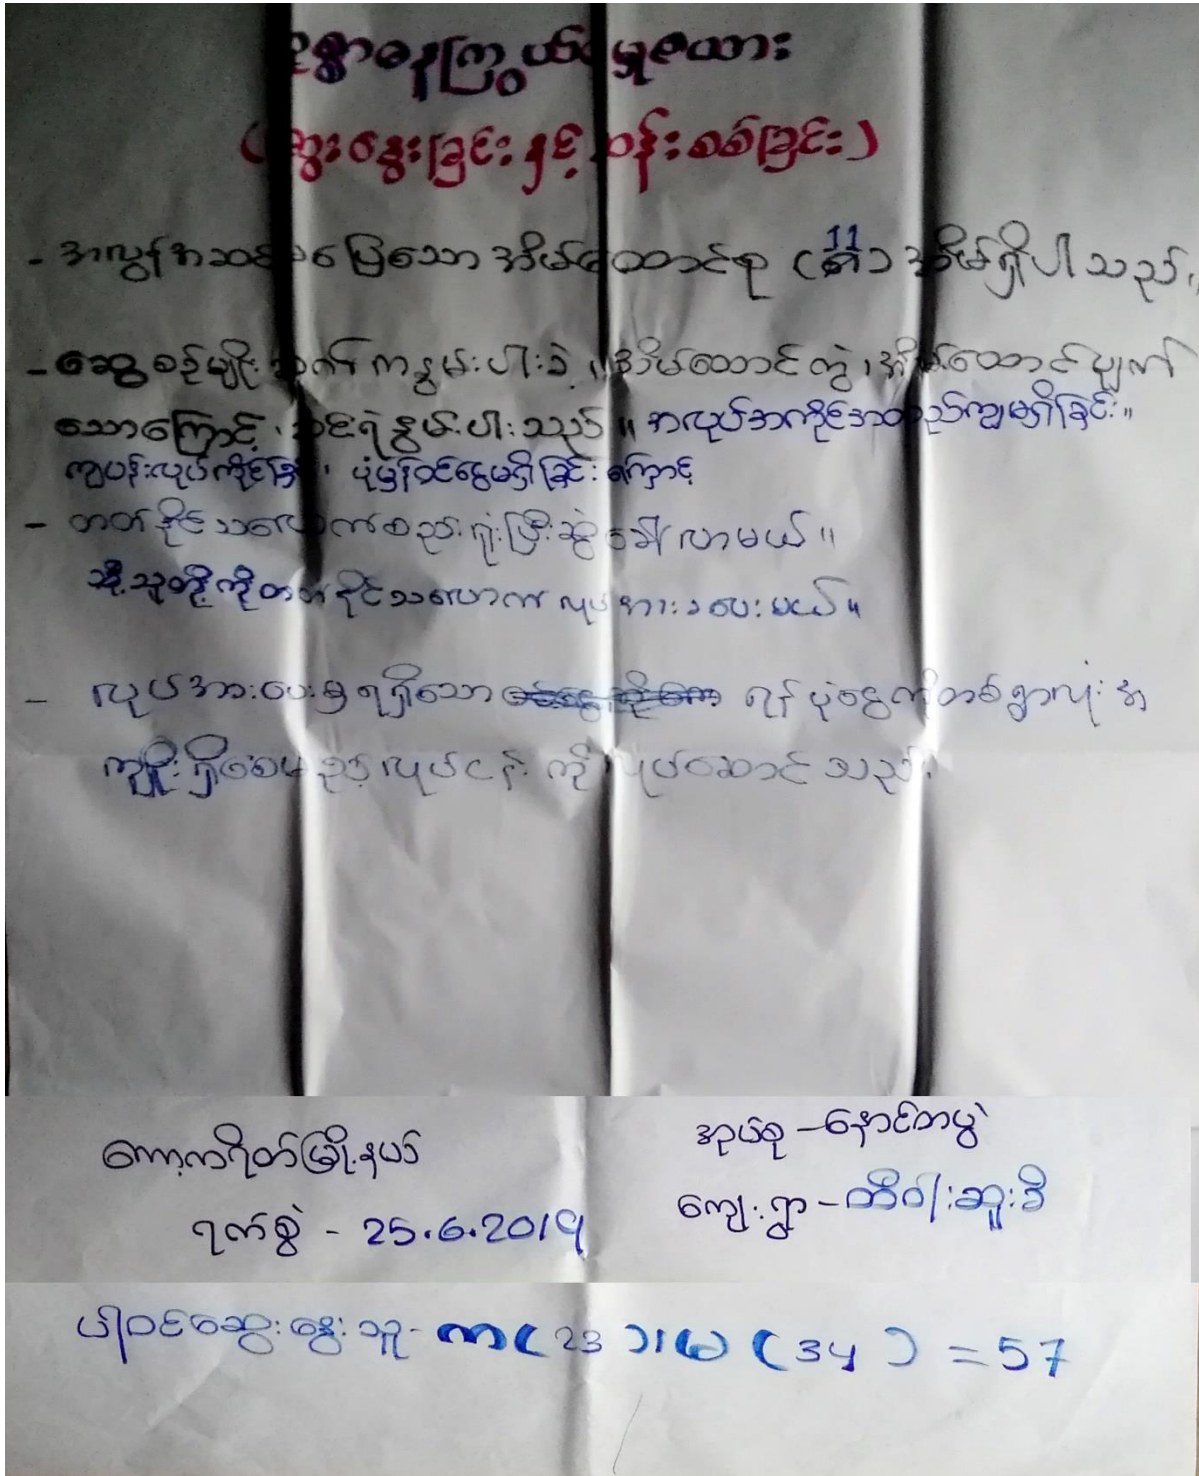 ဥစ္စာဓနကြွယ်ဝမှုဇယား
(ဆွေးနွေးခြင်းနှင့် ဆန်းစစ်ခြင်း)
- အလွန်အဆင်မပြေသော အိမ်ထောင်စု (11) အိမ်ရှိပါသည်။
- ဆွေစဉ်မျိုးဆက်ကနွမ်းပါးခဲ့၊ အိမ်ထောင်ကွဲ၊ အိမ်ထောင်ပျက်
သောကြောင့်၊ ဆင်းရဲနွမ်းပါးသည်။ အလုပ်အကိုင်အတည်ကျမရှိခြင်း။
ကျပန်းလုပ်ကိုင်ခြင်း၊ ပုံမှန်ဝင်ငွေမရှိခြင်းကြောင့်
- တတ်နိုင်သလောက်စည်းရုံးပြီးဆွဲခေါ်လာမယ်။
သို့သူတို့ကိုတတ်နိုင်သလောက် လုပ်အားခပေးမယ်။
- လုပ်အားပေးမှရရှိသော ရန်ပုံငွေကိုတစ်ရွာလုံးအ
ကျိုးရှိစေမည့်လုပ်ငန်းကိုလုပ်ဆောင်သည်။
ကော့ကရိတ်မြို့နယ်
အုပ်စု - နောင်တပွဲ
ရက်စွဲ - 25.6.2019
ကျေးရွာ - ထီဝါးဆူးခီ
ပါဝင်ဆွေးနွေးသူ - ကာ (23)၊ မ (34) = 57